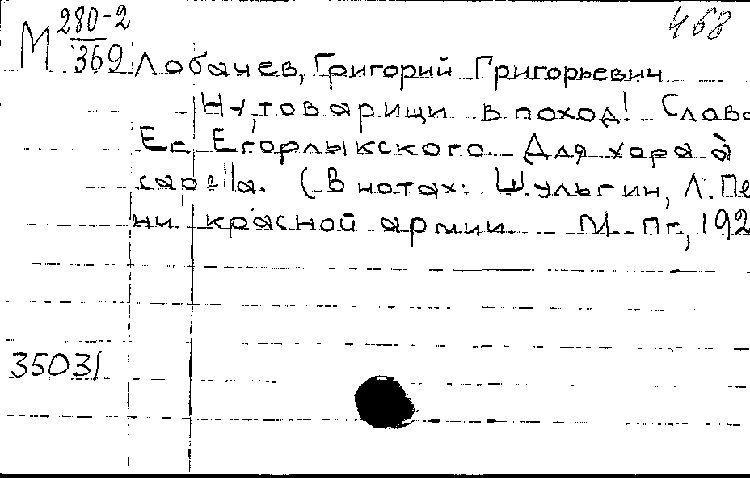 М 280-2 468
369 Лобачев, Григорий Григорьевич
Ну, товарищи в поход! Слова
Ег. Егорлыкского. Для хора à
capella. (В нотах: Шульгин, Л. Пе
ни красной армии М-Пг, 192
35031